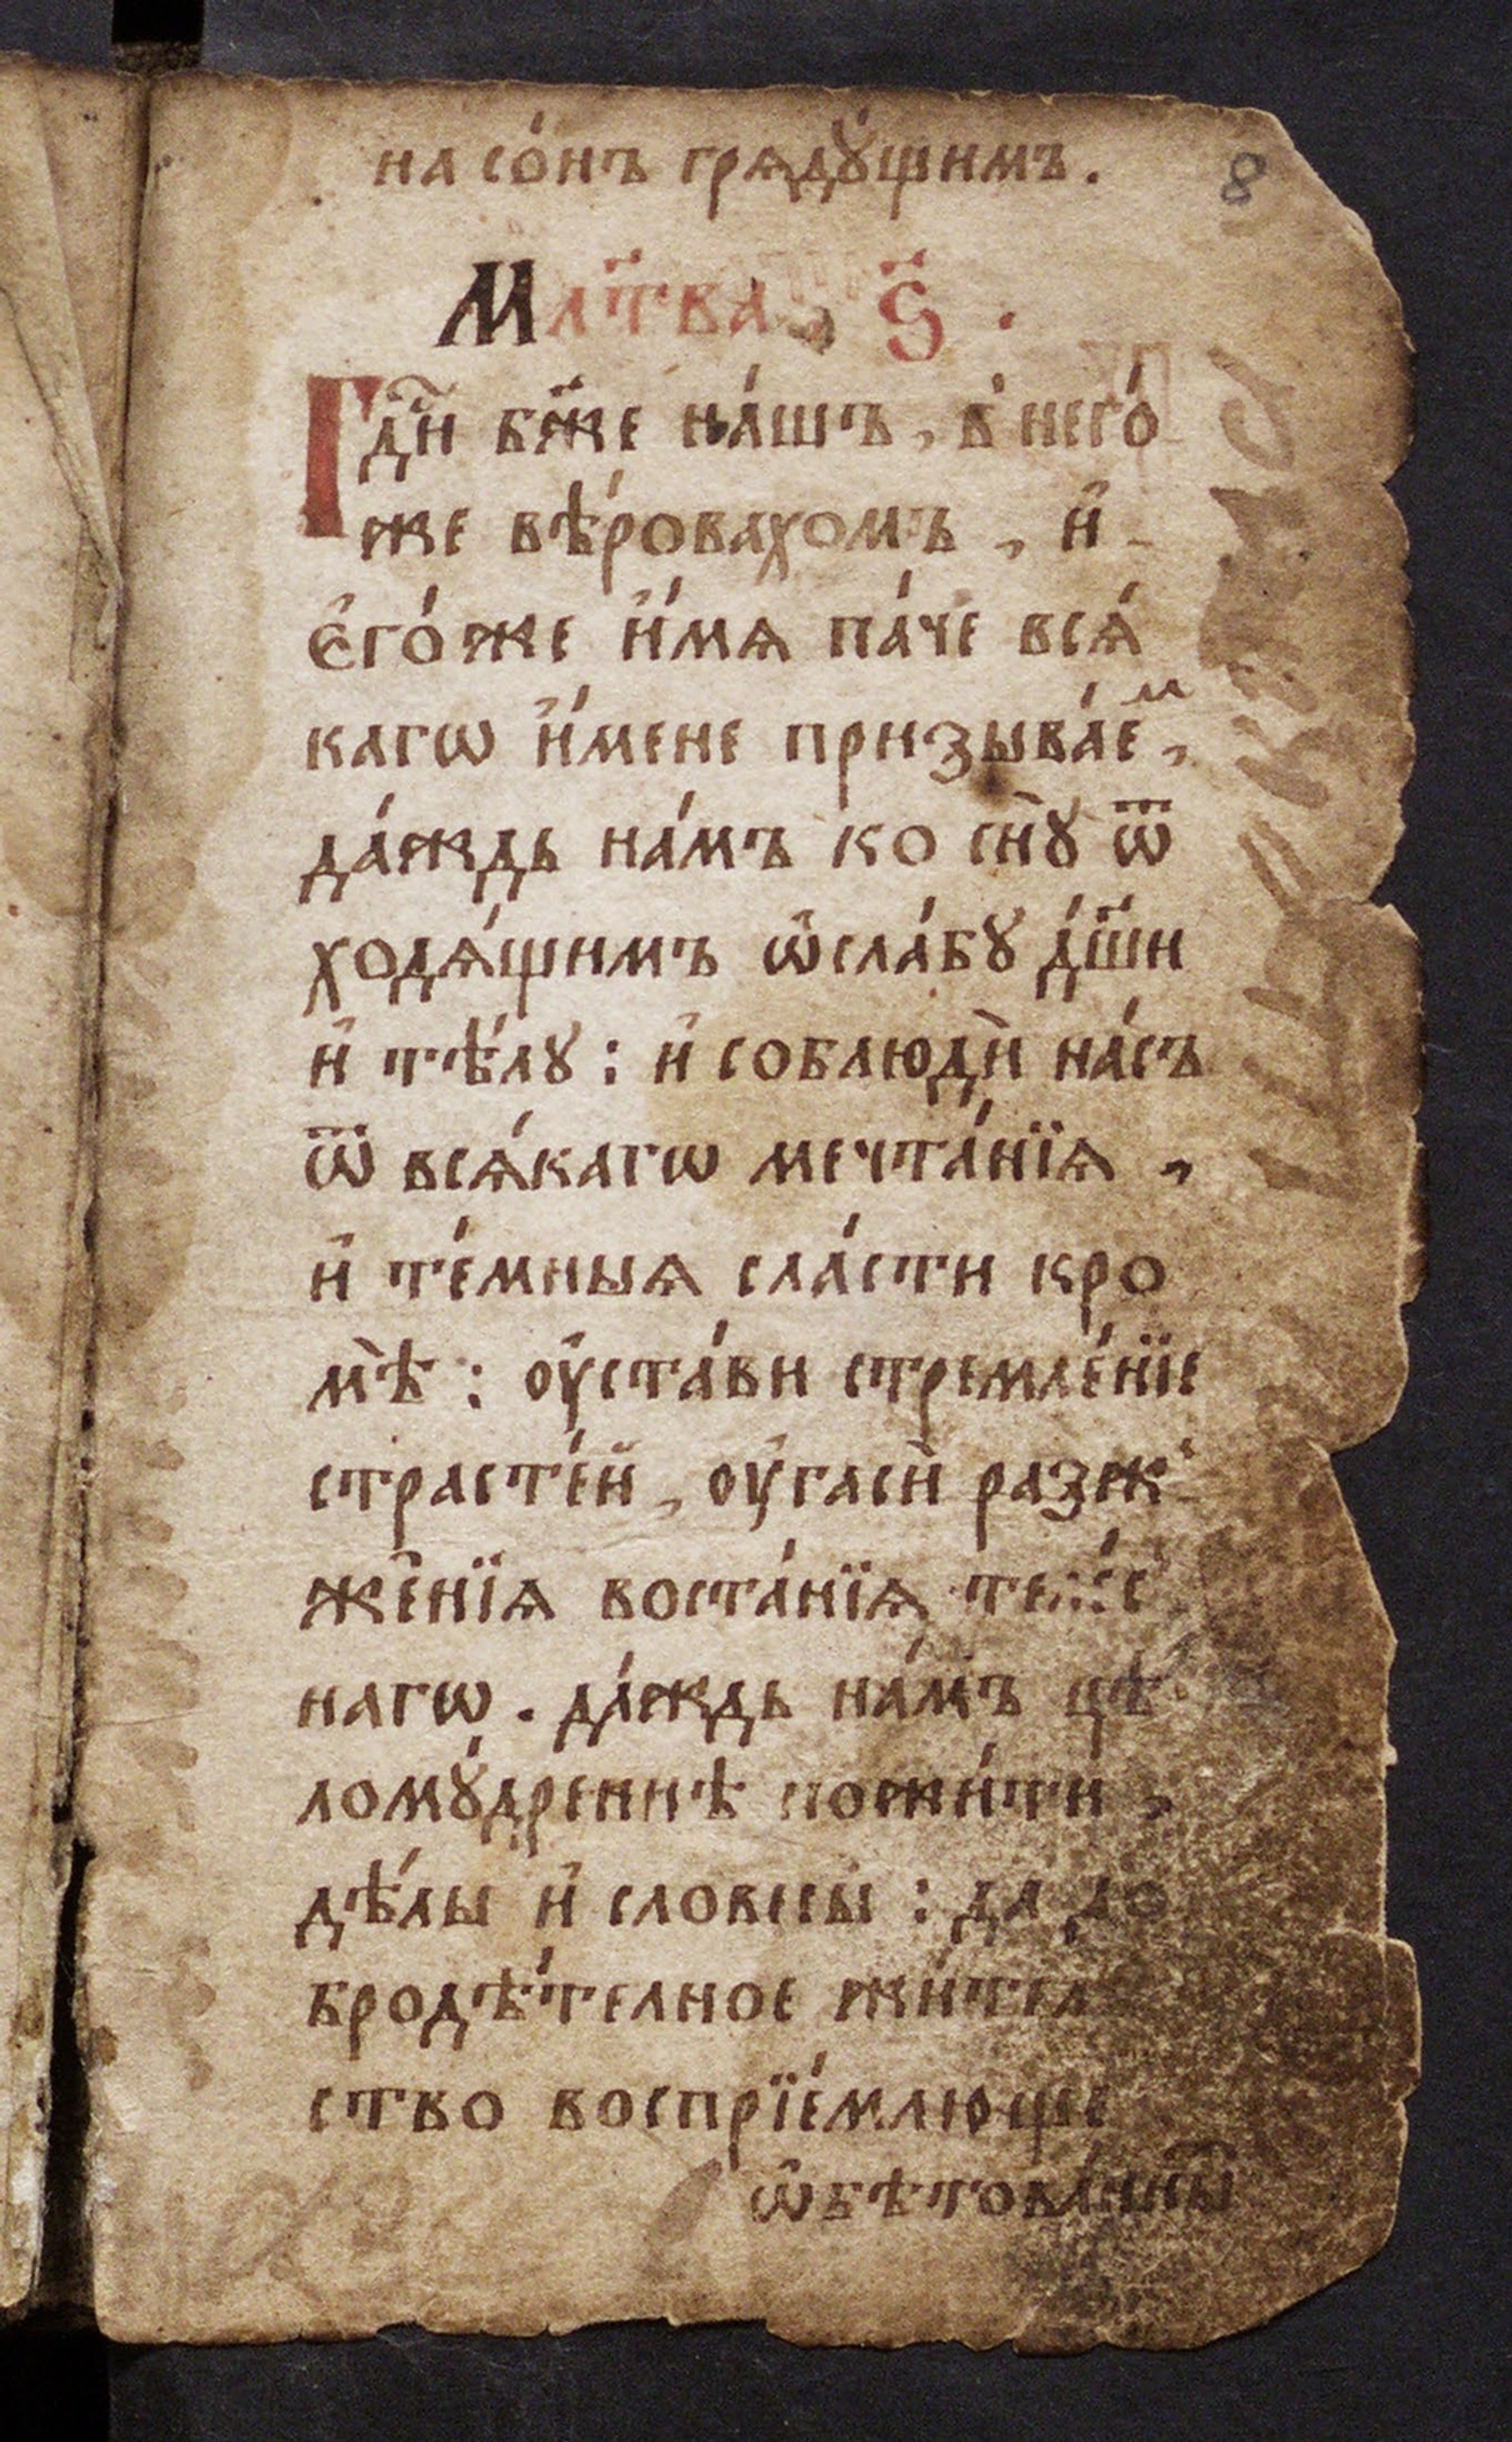 на со́нъ грѧдꙋ́щимъ.
8
Мл҃тва, ѕ҃.
Гдⷭ҇и бж҃е на́шъ, в̾ него́
же вѣ́ровахомъ, и҆
є҆го́же и҆́мѧ па́че всѧ́
кагѡ и҆́мене призыва́еⷨ,
да́ждь на́мъ ко снꙋ̀ ѿ
ходѧ́щимъ ѡ҆сла́бꙋ дш҃и
и҆ тѣ́лꙋ: и҆ соблюдѝ на́съ
ѿ всѧ́кагѡ мечта́нїѧ,
и҆ те́мныѧ сла́сти кро
мѣ̀: оу҆ста́ви стремле́нїе
страсте́й, оу҆гасѝ разж̾
же́нїѧ воста́нїѧ
нагѡ. да́ждь на́мъ цѣ
ломꙋ́дреннѣ пожи́ти,
дѣ́лы и҆ словесы̀: да до
бродѣ́телное жи́тел
ство воспрїе́млюще
ѡ҆бѣтова́нныⷯ